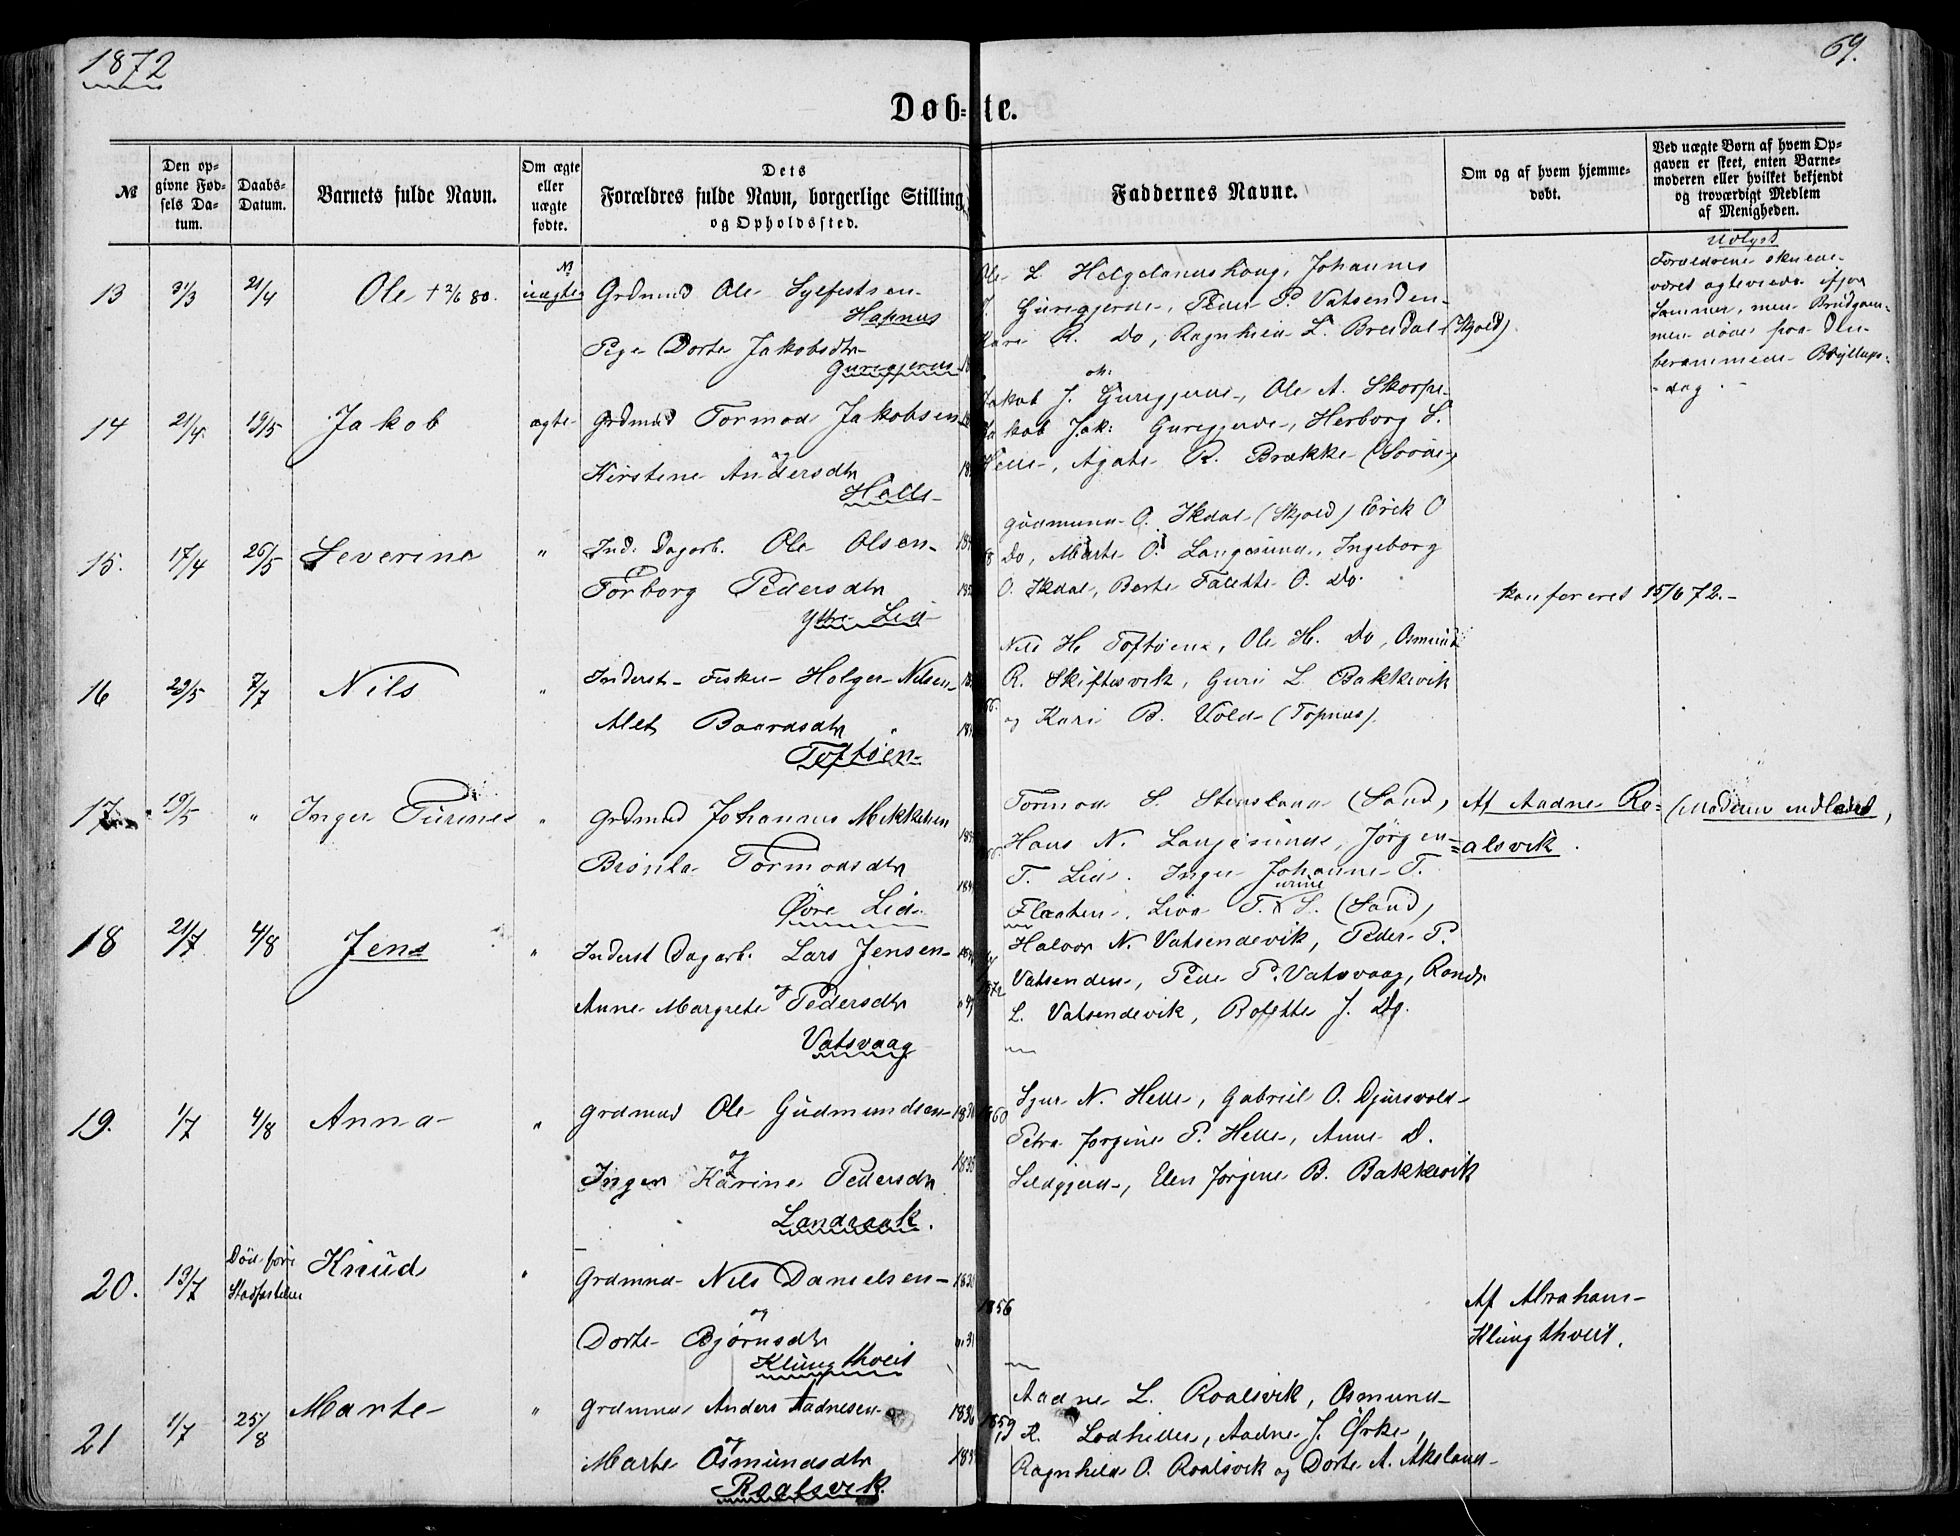 1872
69.
Døb=te.
№
Den op-
givne Fød-
sels Da-
tum.
Daabs-
Datum.
Barnets fulde Navn.
Om ægte
eller
uægte
fødte.
Dets
Forældres fulde Navn, borgerlige Stilling
og Opholdssted.
Faddernes Navne.
Om og af hvem hjemme-
døbt.
Ved uægte Børn af hvem Op-
gaven er skeet, enten Barne-
moderen eller hvilket bekjendt
og troværdigt Medlem
af Menigheden.
13 31/3 21/4 Ole + 2/6 80. uægte Grdmnd Ole Sylfestsen
Hapnes
Pige Dorte Jakobsdtr
Gureggjerde
Ole L. Helgelandshoug, Johannes
J. Gureggjerde, Peder P Vatsenden
Kari R. Do, Ragnhild L. Breidal (Skjold).
Udlagt
Forældrene skulde
været ægteviede ifjor
Sommer, men Brudgom-
men døde paa den
berammede Bryllups-
dag.
14 21/4 19/5 Jakob ægte Grdmnd Tormod Jakobsen
og
Kirstene Andersdtr
Helle
Jakob J. Gureggjerde, Ole A. Skorpe
Jakob Jak: Gureggjerde, Herborg S.
Helle, Agate R. Brække
15. 17/4 26/5 Severine " Ind. Dagarb. Ole Olsen
Torborg Pedersdtr
Ytre Lid
Gudmund O. Ikdal (Skjold) Erik O
Do, Marte O. Langesund, Ingeborg
O. Ikdal, Berte Talette O. Do.
konfereret 15/6 72.
16 29/5 7/7 Nils " Inderst Fisker Holger Nilsen
Alet Baardsdtr
Toftøen
Nils H. Toftøen, Ole H. Do, Osmund
R. Skiftesvik, Guri L. Bakkevik
og Kari B. Vold (Topnes).
17 19/5 " Inger Turine " Grdmnd Johannes Mikkelsen
Brønla Tormodsdtr
Øvre Lid
Tormod S. Stensland (Sand)
Hans N. Langesund, Jørgen
T. Lid. Inger Johanne T.
Flaaten, Liva T. S. (Sand)
Af Aadne Ro-
alsvik.
18 21/7 4/8 Jens " Inderst Dagarb. Lars Jensen
og
Anne Margrete Pedersdtr
Vatsvaag
Halvor N. Vatsendevik, Peder P.
Vatsenden, Peder P. Vatsvaag,
L. Vatsendevik, Bolette J. Do.
19. 1/7 4/8 Anna " Grdmnd Ole Gudmundsen
og
Inger Karine Pedersdtr 1835
Landraak.
1860
Sjur N. Helle, Gabriel O. Djursvold
Petra Jorgine P. Helle, Anne D.
Elen Jørgine B. Bakkevik
20. 13/7 Død före
Stadfæstelsen
Knud " Grdmnd Nils Danielsen
og
Dorte Bjørnsdtr
Klungtveit
1856
Af Abraham
Klungtveit.
21 1/7 25/8 Marte " Grdmnd Anders Aadnesen 1836
og
Marte Osmundsdtr
Roalsvik
1859
Aadne L. Roalsvik, Osmund
R. Lodhille, Aadne J. Ørke,
Ragnhild O. Roalsvik og Dorte A. Aksland